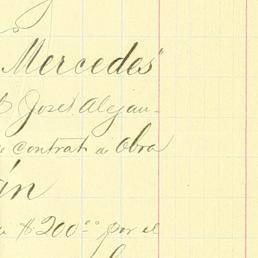 Mercedes"
José Alejan-
contrato a Obra
án
$200.00 por el